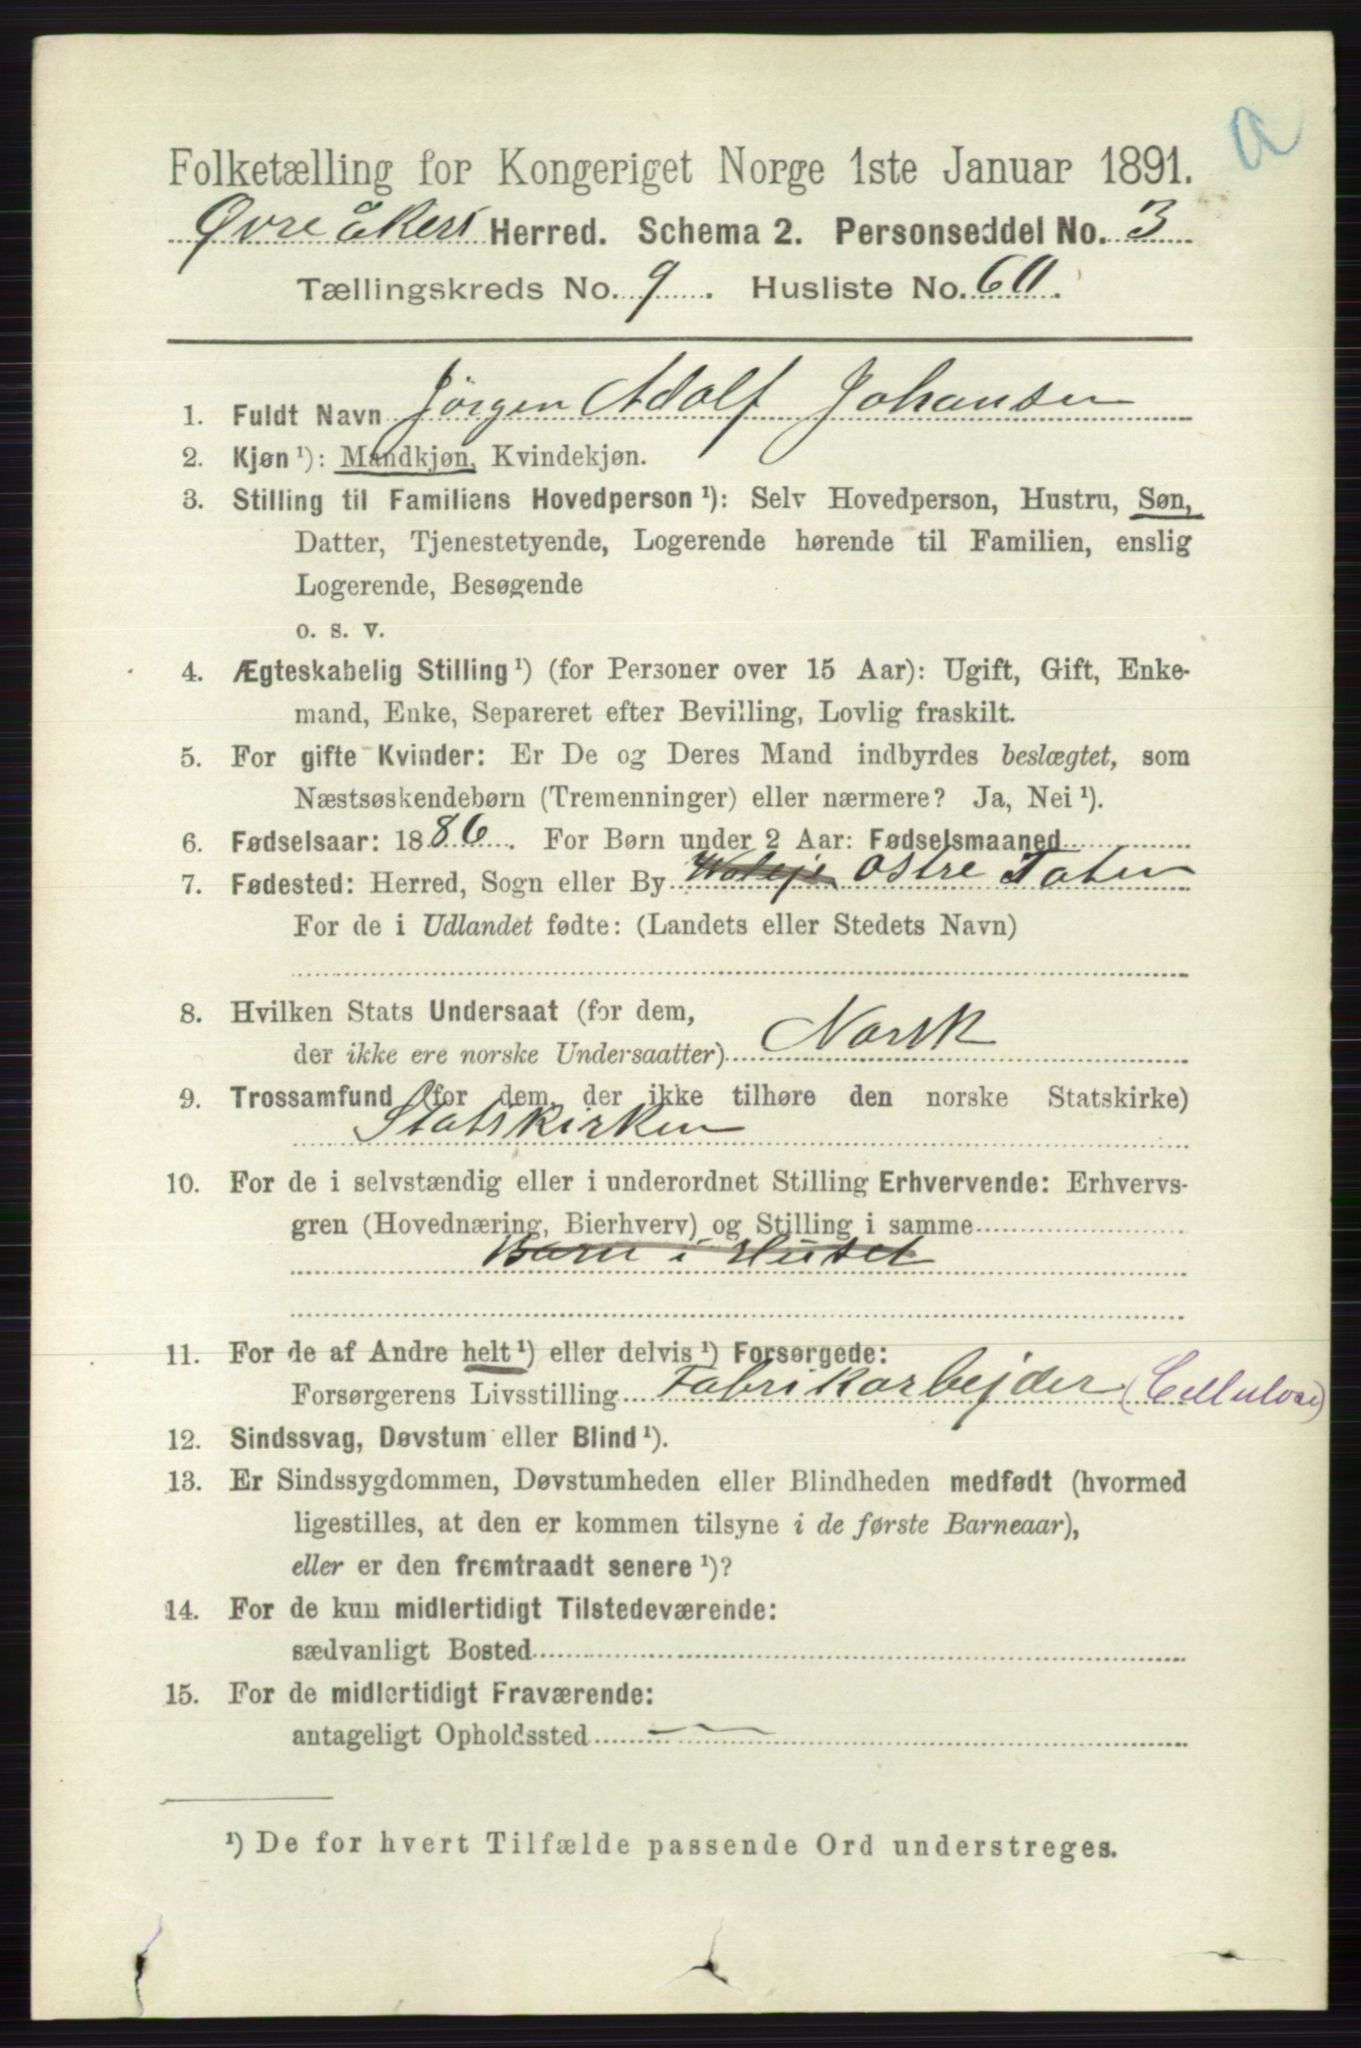 a
Folketælling for Kongeriget Norge 1ste Januar 1891.
Øvre Eikers Herred. Schema 2. Personseddel No. 3
Tællingskreds No. 9. Husliste No. 60.
1. Fuldt Navn Jörgen Adolf Johansen
2. Kjøn¹): Mandkjøn, Kvindekjøn.
3. Stilling til Familiens Hovedperson¹): Selv Hovedperson, Hustru, Søn,
Datter, Tjenestetyende, Logerende hørende til Familien, enslig
Logerende, Besøgende
o. s. v.
4. Ægteskabelig Stilling¹) (for Personer over 15 Aar): Ugift, Gift, Enke-
mand, Enke, Separeret efter Bevilling, Lovlig fraskilt.
5. For gifte Kvinder: Er De og Deres Mand indbyrdes beslægtet, som
Næstsøskendebørn (Tremenninger) eller nærmere? Ja, Nei¹).
6. Fødselsaar: 1886. For Børn under 2 Aar: Fødselsmaaned
7. Fødested: Herred, Sogn eller By Ostre Toten
For de i Udlandet fødte: (Landets eller Stedets Navn)
8. Hvilken Stats Undersaat (for dem,
der ikke ere norske Undersaatter) Norsk
9. Trossamfund (for dem, der ikke tilhøre den norske Statskirke)
Statskirken
10. For de i selvstændig eller i underordnet Stilling Erhvervende: Erhvervs-
gren (Hovednæring, Bierhverv) og Stilling i samme
Barn i Huset
11. For de af Andre helt¹) eller delvis¹) Forsørgede:
Forsørgerens Livsstilling Fabrikarbejder (Cellulose)
12. Sindssvag, Døvstum eller Blind¹).
13. Er Sindssygdommen, Døvstumheden eller Blindheden medfødt (hvormed
ligestilles, at den er kommen tilsyne i de første Barneaar),
eller er den fremtraadt senere¹)?
14. For de kun midlertidigt Tilstedeværende:
sædvanligt Bosted
15. For de midlertidigt Fraværende:
antageligt Opholdssted
¹) De for hvert Tilfælde passende Ord understreges.